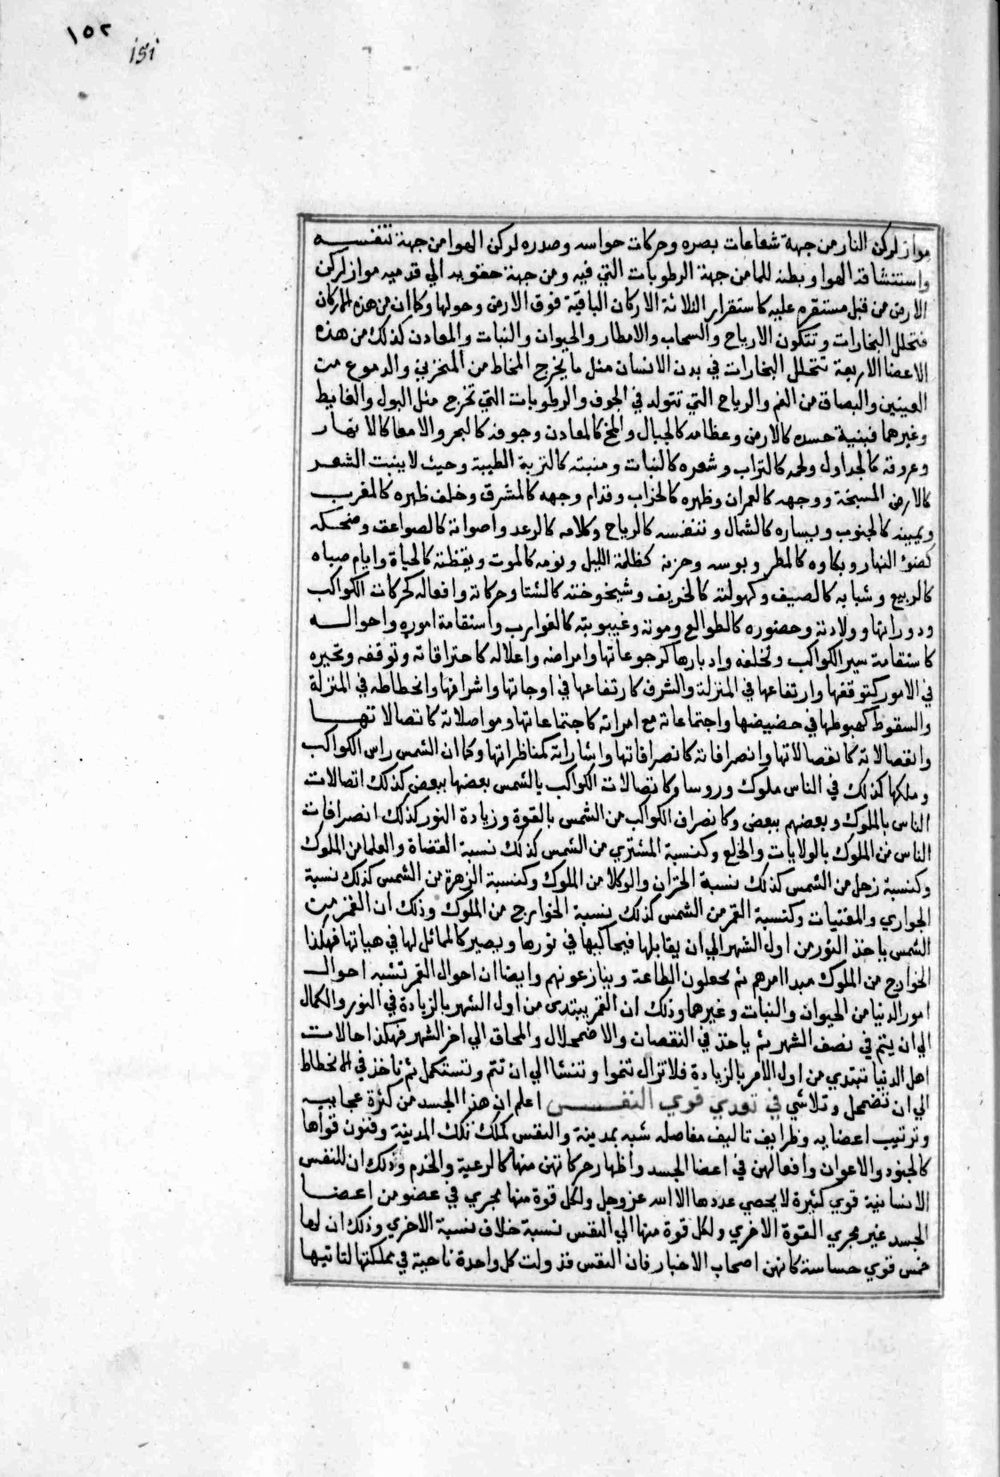 ١٥٢
151
مواز لركن النار من جهة شعاعات بصره وحركات حواسه وصدره لركن الهوا من جهة تنفسه
واستنشاقه الهوا وبطنه للما من جهة الرطوبات التي فيه ومن جهة حقويه الي قدميه مواز لركن
الارض من قبل مستقره عليه كاستقرار الثلاثة الاركان الباقية فوق الارض وحولها وكما ان من هذه الاركان
تتحلل البخارات وتتكون الارياح والسحاب والامطار والحيوان والنبات والمعادن كذلك من هذه
الاعضا الاربعة تتحلل البخارات في بدن الانسان مثل ما يخرج المخاط من المنخرين والدموع من
العينين والبصاق من الفم والرياح التي تتولد في الجوف والرطوبات التي تخرج مثل البول والغايط
وغيرهما فبنية جسده كالارض وعظامه كالجبال والمخ كالمعادن وجوفه كالبحر والامعا كالانهار
وعروقه كالجداول ولحمه كالتراب وشعره كالنبات ومنبته كالتربة الطيبة وحيث لا ينبت الشعر
كالارض السبخة ووجهه كالعمران وظهره كالخراب وقدام وجهه كالمشرق وخلف ظهره كالمغرب
ويمينه كالجنوب ويساره كالشمال وتنفسه كالرياح وكلامه كالرعد واصواته كالصواعق وضحكه
كضوء النهار وبكاوه كالمطر وبوسه وحزنه كظلمة الليل ونومه كالموت ويقظته كالحياة وايام صباه
كالربيع وشبابه كالصيف وكهولته كالخريف وشيخوخته كالشتا وحركاته وافعاله كحركات الكواكب
ودورانها وولادته وحضوره كالطوالع وموته وغيبوبته كالغوارب واستقامة اموره واحواله
كاستقامة سير الكواكب وتخلفه وادبارها كرجوعاتها وامراضه واعلاله كاحتراقاته وتوقفه وتحيره
في الامور كتوقفها وارتفاعها في المنزلة والشرف كارتفاعها في اوجاتها واشرافها وانحطاطه في المنزلة
والسقوط كهبوطها في حضيضها واجتماعاته مع امراته كاجتماعاتها ومواصلاته كاتصالاتها
وانفصالاته كانفصالاتها وانصرافاته كانصرافاتها واشاراته كمناظراتها وكما ان الشمس راس الكواكب
وملكها كذلك في الناس ملوك وروسا وكاتصالات الكواكب بالشمس بعضها ببعض كذلك اتصالات
الناس بالملوك وبعضهم ببعض وكانصراف الكواكب من الشمس بالقوة وزيادة النور كذلك انصرافات
الناس من الملوك بالولايات والخلع وكنسبة المشتري من الشمس كذلك نسبة القضاة والعلما من الملوك
وكنسبة زحل من الشمس كذلك نسبة الخزان والوكلا من الملوك وكنسبة الزهرة من الشمس كذلك نسبة
الجواري والمغنيات وكنسبة القمر من الشمس كذلك نسبة الخوارج من الملوك وذلك ان القمر من
الشمس ياخذ النور من اول الشهر الي ان يقابلها فيحاكيها في نورها ويصير كالمماثل لها في هيأتها فهكذا
الخوارج من الملوك مبدا امرهم ثم يجعلون الطاعة وينازعونهم وايضا ان احوال القمر تشبه احوال
امور الدنيا من الحيوان والنبات وغيرها وذلك ان القمر يبتدي من اول الشهر بالزيادة في النور والكمال
الي ان يتم في نصف الشهر ثم ياخذ في النقصان والاضمحلال والمحاق الي اخر الشهر فهكذا حالات
اهل الدنيا تبتدي من اول الامر بالزيادة فلا تزال تنموا وتنشا الي ان تتم وتستكمل ثم تاخذ في الانحطاط
الي ان تضمحل وتلاشي في تعدي قوي النفس اعلم ان هذا الجسد من كثرة عجايبه
وترتيب اعضايه وظرايف تاليف مفاصله شبه بمدينة والنفس كملك تلك المدينة وفنون قواها
كالجنود والاعوان وافعالهن في اعضا الجسد واظهار حركاتهن منها كالرعية والخدم وذلك ان للنفس
الانسانية قوي كثيرة لا يحصي عددها الا الله عز وجل ولكل قوة منها مجري في عضو من اعضا
الجسد غير مجري القوة الاخري ولكل قوة منها الي النفس نسبة خلاف نسبة الاخري وذلك ان لها
خمس قوي حساسة كانهن اصحاب الاخبار فان النفس قد ولت كل واحدة ناحية في مملكتها لتاتيها